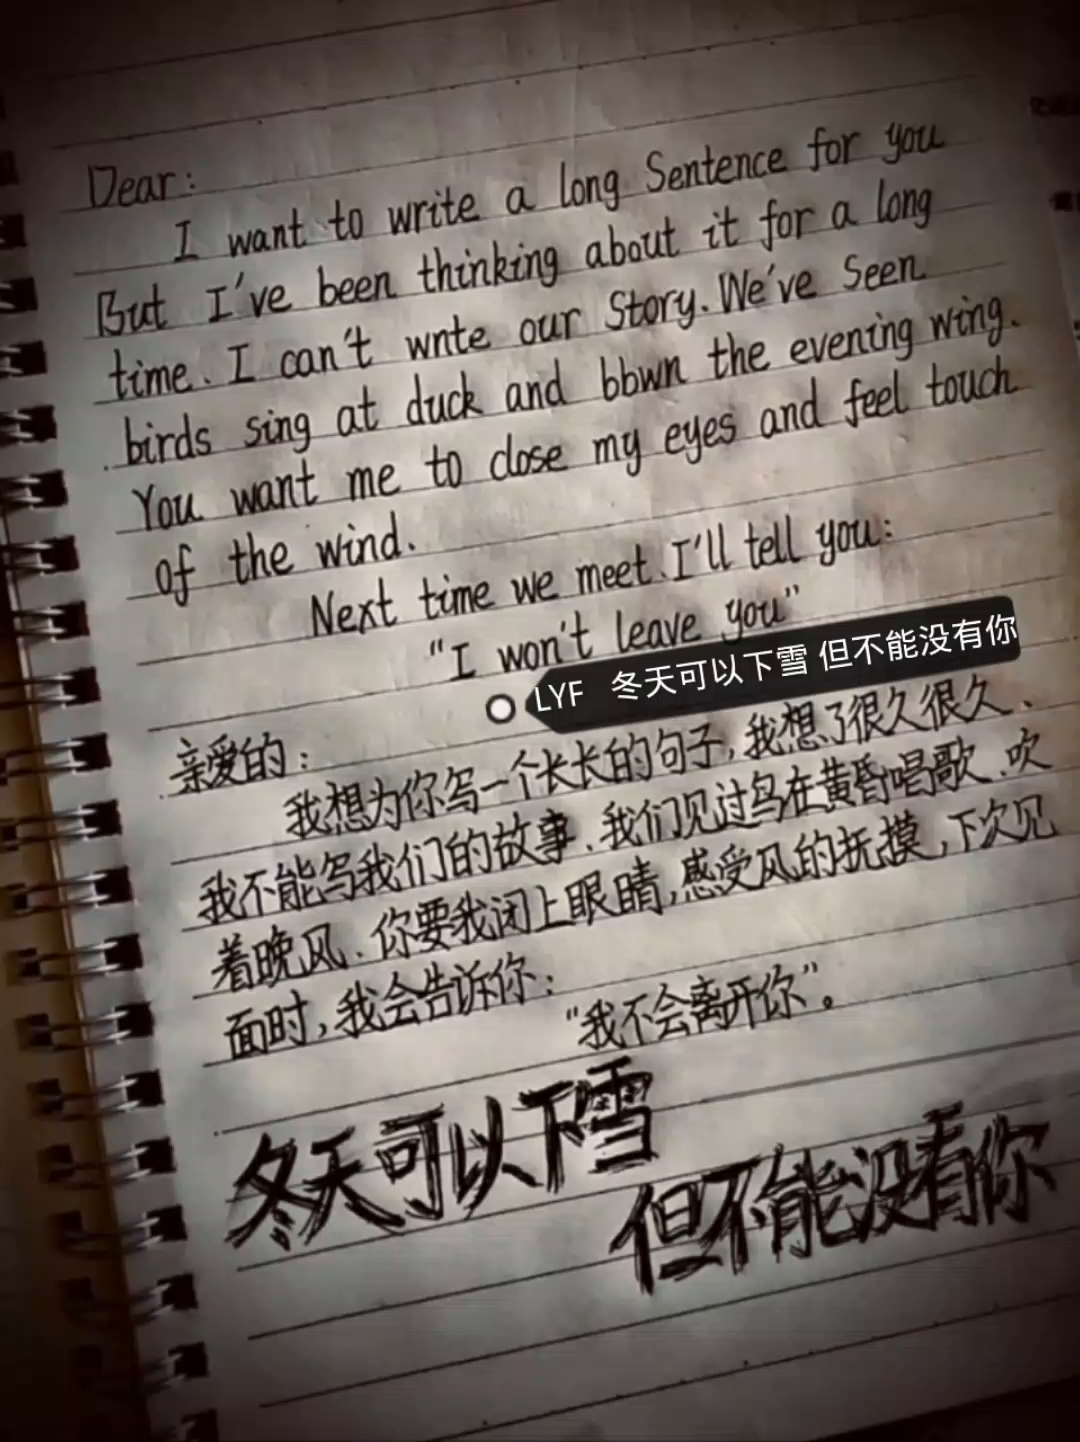 Dear:
I want to write a long Sentence for you
But I've been thinking about it for a long
time. I can't wnte our Story. We've Seen
birds sing at duck and bbwn the evening wing.
You want me to close my eyes and feel touch
of the wind.
Next time we meet. I'll tell you:
"I won't leave you"
LYF 冬天可以下雪 但不能没有你
亲爱的：
我想为你写一个长长的句子，我想了很久很久、
我不能写我们的故事、我们见过鸟在黄昏唱歌、吹
着晚风、你要我闭上眼睛，感受风的抚摸，下次见
面时，我会告诉你：
“我不会离开你”。
冬天可以下雪
但不能没有你